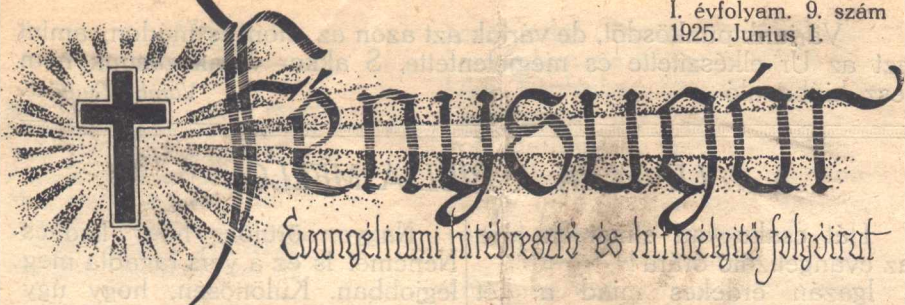 I. évfolyam. 9. szám
1925. Junius 1.
Fénysugár
Evangéliumi hitébresztő és hitmélyítő folyóirat